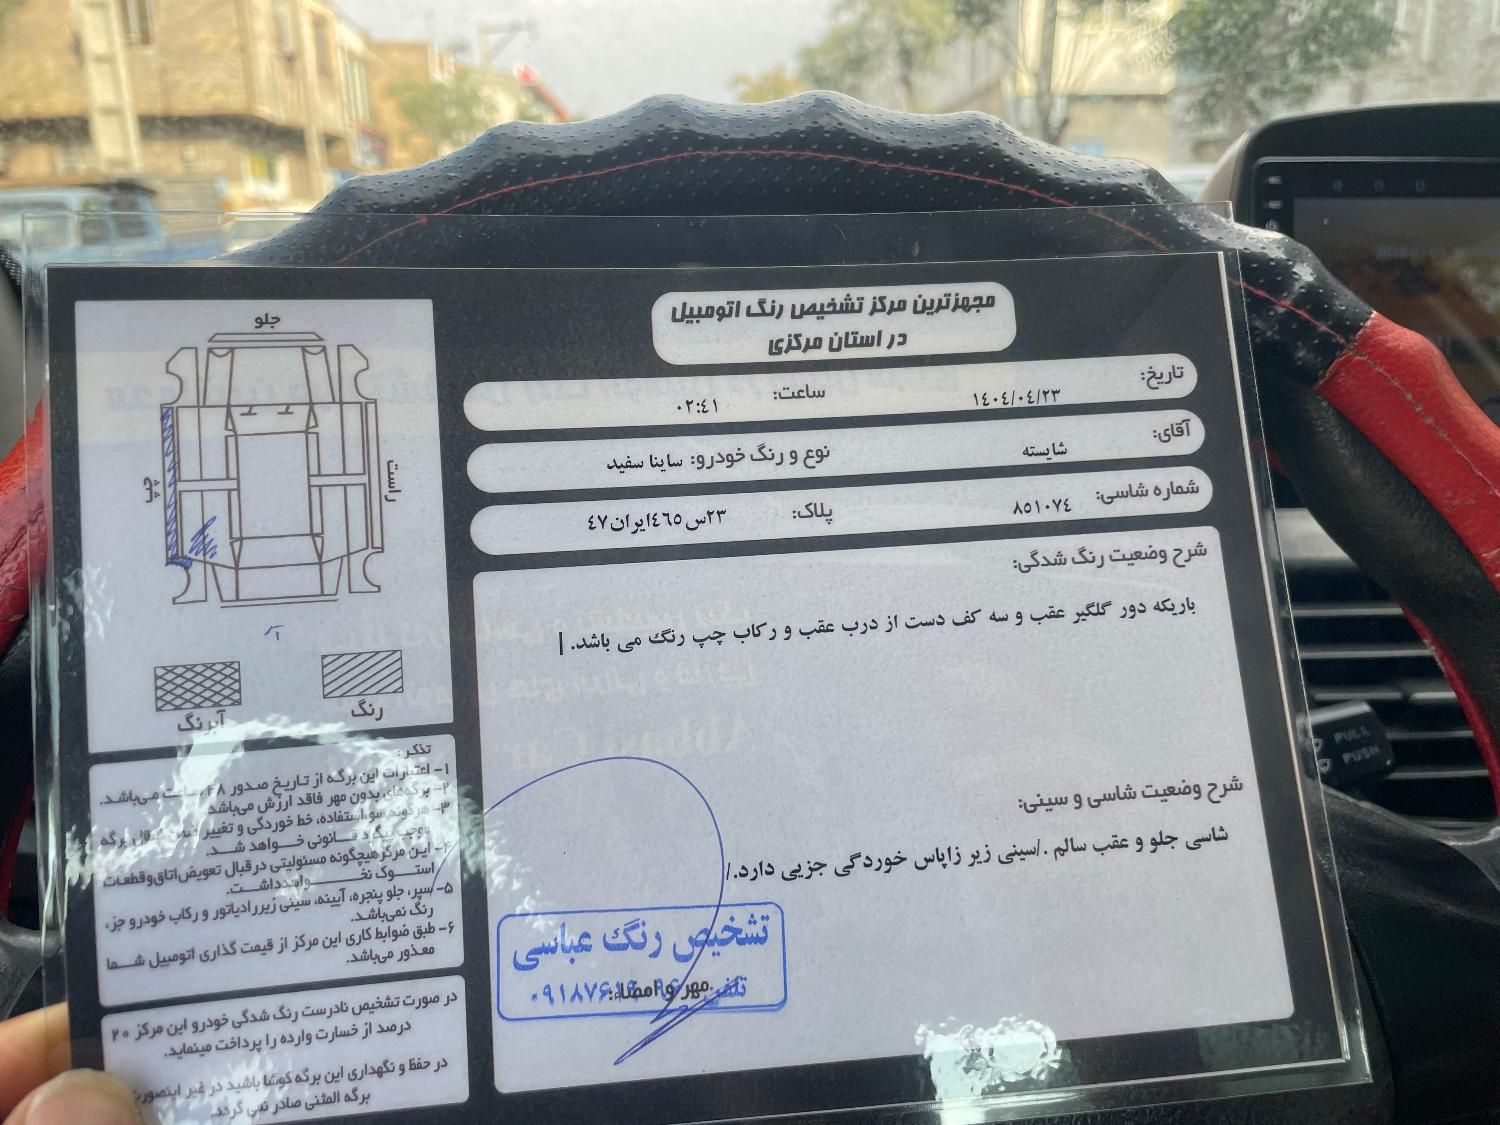 مجهزترین مرکز تشخیص رنگ اتومبیل
در استان مرکزی
تاریخ: ۱٤۰٤/۰٤/۲۳ ساعت: ۰۲:٤۱
آقای: شایسته نوع و رنگ خودرو: ساینا سفید
شماره شاسی: ۸۵۱۰۷٤ پلاک: ۲۳س٤٦۵ایران٤۷
شرح وضعیت رنگ شدگی:
باریکه دور گلگیر عقب و سه کف دست از درب عقب و رکاب چپ رنگ می باشد.
شرح وضعیت شاسی و سینی:
شاسی جلو و عقب سالم ./سینی زیر زاپاس خوردگی جزیی دارد./
تشخیص رنگ عباسی
تلفن
مهر و امضاء:
جلو
راست
چپ
رنگ
آبرنگ
تذکر:
۱- اعتبارات این برگه از تاریخ صدور ۴۸ ساعت می‌باشد.
۲- برگه‌های بدون مهر فاقد ارزش می‌باشد
۳- هرگونه سوءاستفاده، خط خوردگی و تغییر برگه
موجب پیگرد قانونی خواهد شد.
۴- این مرکز هیچگونه مسئولیتی در قبال تعویض اتاق و قطعات
استوک نخواهد داشت.
۵- سپر، جلو پنجره، آیینه، سینی زیر رادیاتور و رکاب خودرو جزء
رنگ نمی‌باشد.
۶- طبق ضوابط کاری این مرکز از قیمت گذاری اتومبیل شما
معذور می‌باشد.
در صورت تشخیص نادرست رنگ شدگی خودرو این مرکز ۲۰
درصد از خسارت وارده را پرداخت مینماید.
در حفظ و نگهداری این برگه کوشا باشید در غیر اینصورت
برگه المثنی صادر نمی گردد.
PULL
PUSH